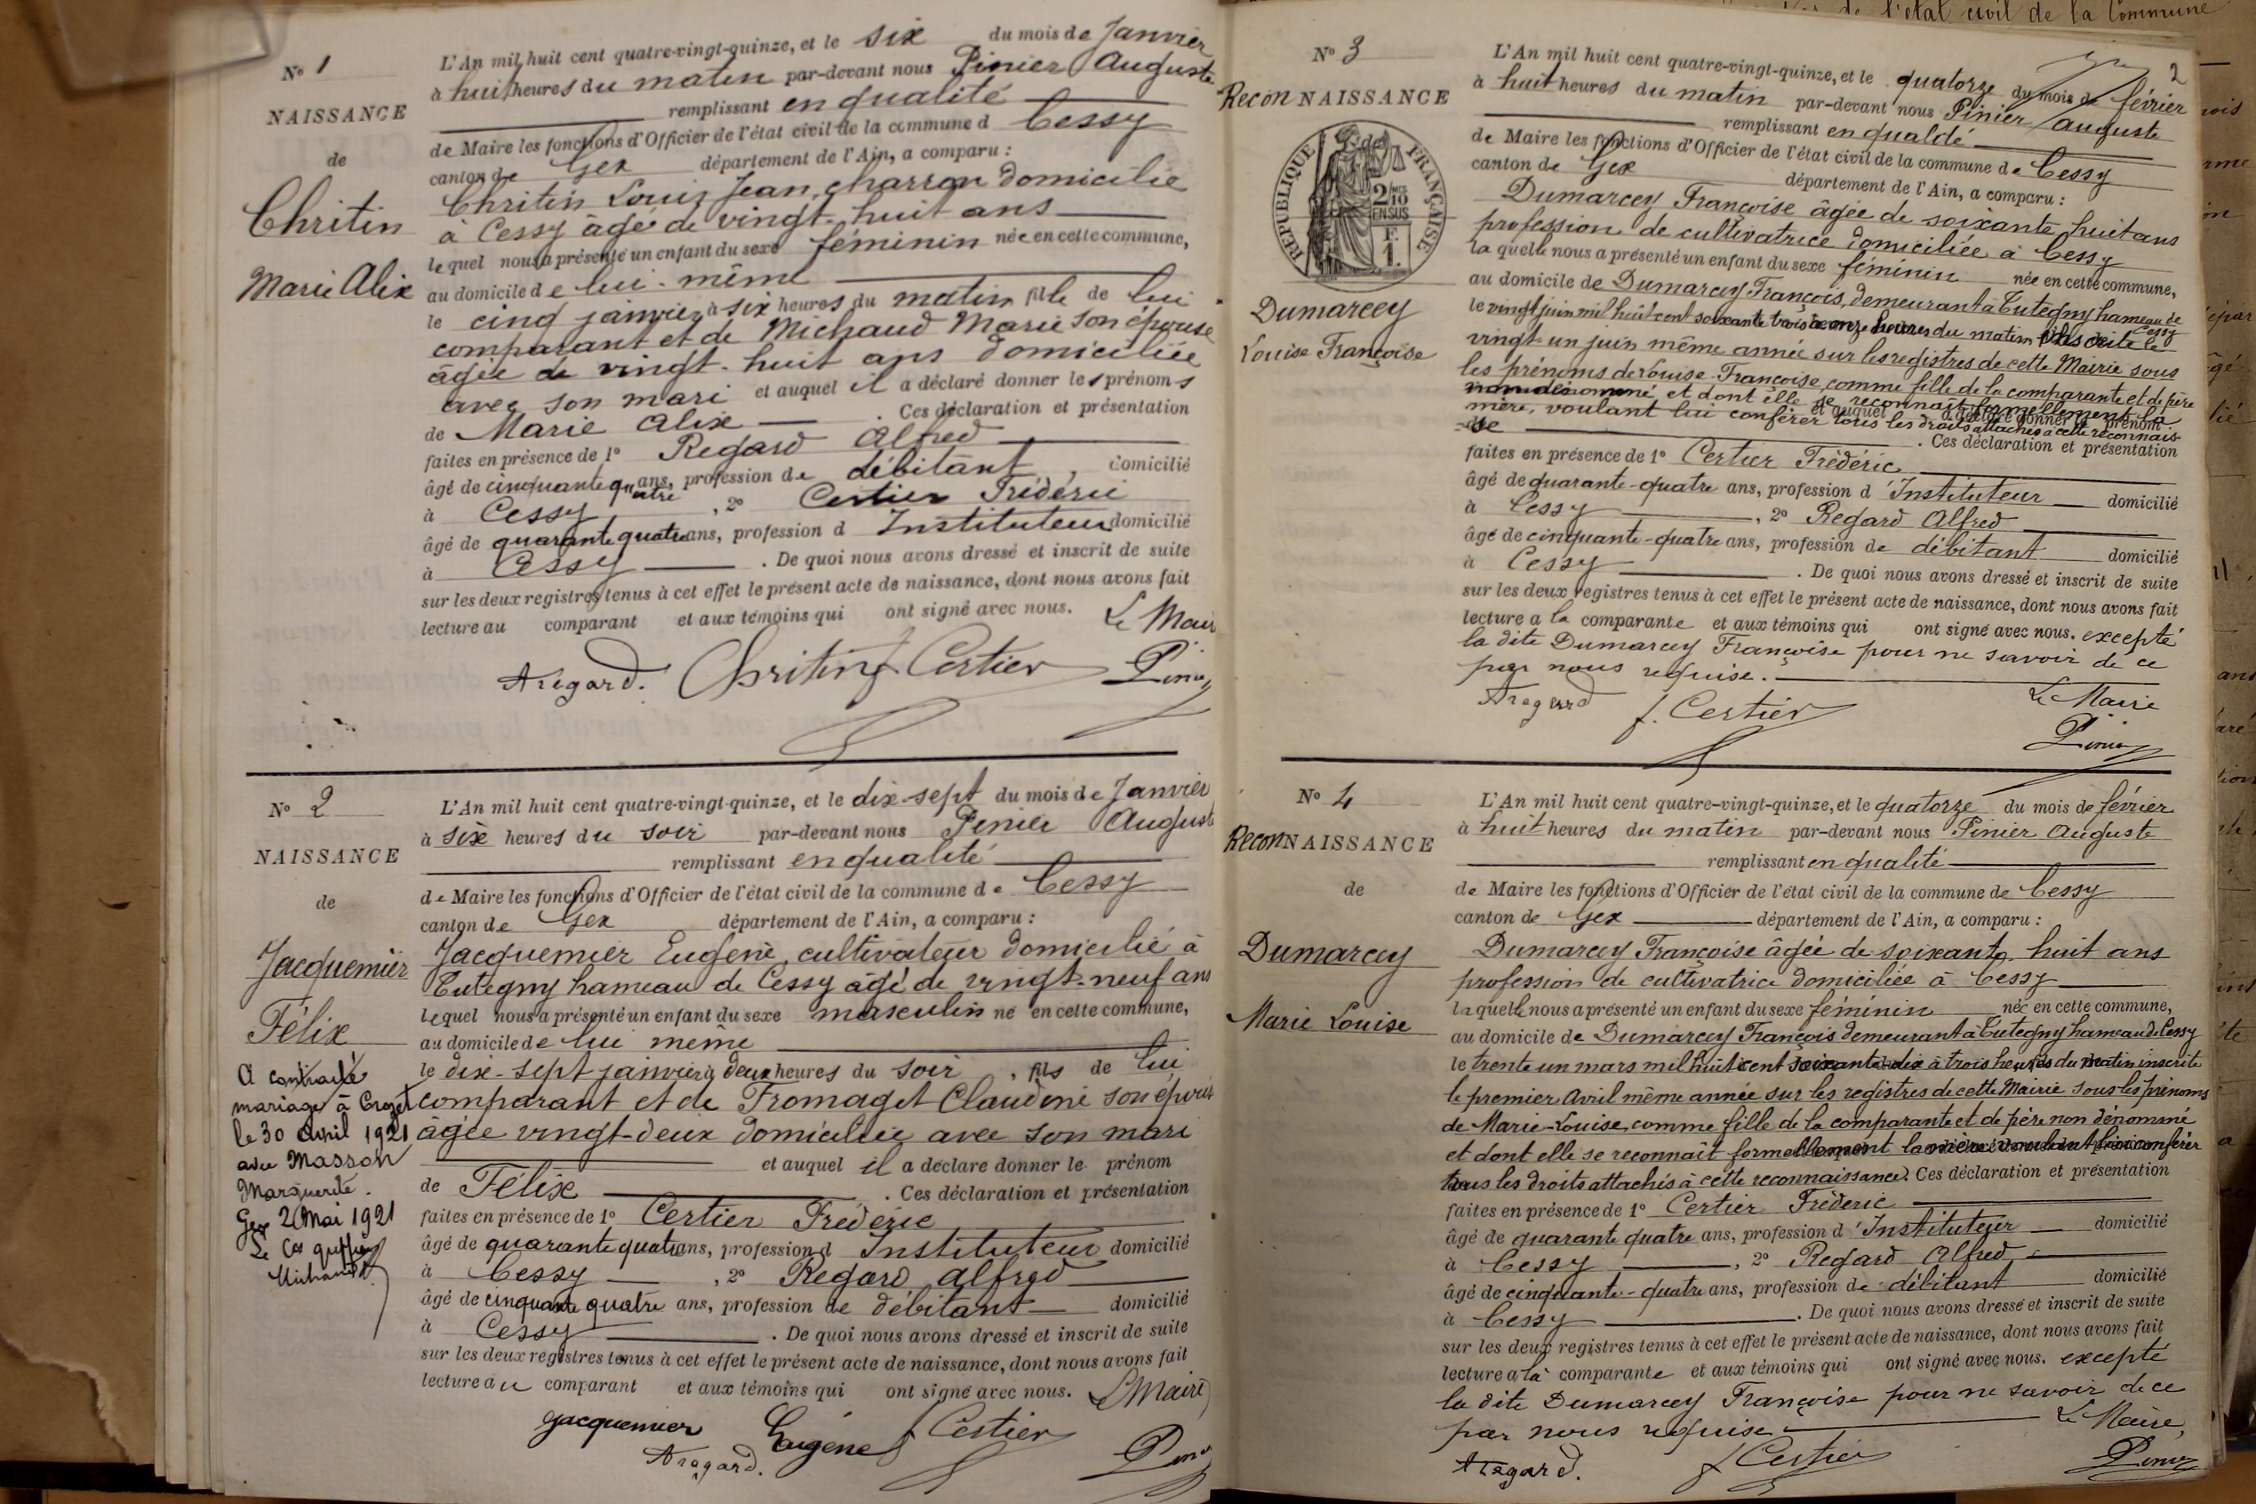 de l'état civil de la Commune
N° 1
NAISSANCE
de
Chritin
Marie Alix
L'An mil huit cent quatre-vingt-quinze, et le six du mois de Janvier
à huit heures du matin par-devant nous Pinier Auguste
remplissant en qualité
de Maire les fonctions d'Officier de l'état civil de la commune d Cessy
canton de Gex département de l'Ain, a comparu :
Chritin Louis Jean, charron domicilié
à Cessy âgé de vingt-huit ans
lequel nous a présenté un enfant du sexe féminin née en cette commune,
au domicile de lui-même
le cinq janvier à six heures du matin fille de lui
comparant et de Michaud Marie son épouse
âgée de vingt-huit ans domiciliée
avec son mari et auquel il a déclaré donner les prénoms
de Marie Alix . Ces déclaration et présentation
faites en présence de 1° Regard Alfred
âgé de cinquante quatre ans, profession de débitant , domicilié
à Cessy , 2° Certier Frédéric
âgé de quarante quatre ans, profession d Instituteur domicilié
à Cessy . De quoi nous avons dressé et inscrit de suite
sur les deux registres tenus à cet effet le présent acte de naissance, dont nous avons fait
lecture au comparant et aux témoins qui ont signé avec nous. Le Maire
A regard. Chritin f Certier Pinier
N° 2
NAISSANCE
de
Jacquemier
Félix
A contracté
mariage à Crozet
le 30 Avril 1921
avec Masson
Marguerite.
Gex 2 Mai 1921
Le Cs greffier
Michaud
L'An mil huit cent quatre-vingt-quinze, et le dix-sept du mois de Janvier
à six heures du soir par-devant nous Pinier Auguste
remplissant en qualité
de Maire les fonctions d'Officier de l'état civil de la commune de Cessy
canton de Gex département de l'Ain, a comparu :
Jacquemier Eugène, cultivateur domicilié à
Tutegny hameau de Cessy âgé de vingt-neuf ans
lequel nous a présenté un enfant du sexe masculin né en cette commune,
au domicile de lui même
le dix-sept janvier à deux heures du soir , fils de lui
comparant et de Fromaget Claudine son épouse
âgée vingt-deux domiciliée avec son mari
et auquel il a déclaré donner le prénom
de Félix . Ces déclaration et présentation
faites en présence de 1° Certier Frédéric
âgé de quarante quatre ans, profession d Instituteur domicilié
à Cessy , 2° Regard Alfred
âgé de cinquante quatre ans, profession de débitant domicilié
à Cessy . De quoi nous avons dressé et inscrit de suite
sur les deux registres tenus à cet effet le présent acte de naissance, dont nous avons fait
lecture au comparant et aux témoins qui ont signé avec nous. Le Maire
Jacquemier Eugène f Certier
A regard. Pinier
2
N° 3
Recon NAISSANCE
RÉPUBLIQUE FRANÇAISE
2/10 EN SUS
F. 1.
Dumarcey
Louise Françoise
L'An mil huit cent quatre-vingt-quinze, et le quatorze du mois de février
à huit heures du matin par-devant nous Pinier Auguste
remplissant en qualité
de Maire les fonctions d'Officier de l'état civil de la commune de Cessy
canton de Gex département de l'Ain, a comparu :
Dumarcey Françoise âgée de soixante huit ans
profession de cultivatrice domiciliée à Cessy
laquelle nous a présenté un enfant du sexe féminin née en cette commune,
au domicile de Dumarcey François, demeurant à Tutegny hameau de Cessy
le vingt juin mil huit cent soixante trois à onze heures du matin inscrite le
vingt-un juin même année sur les registres de cette Mairie sous
les prénoms de Louise-Françoise, comme fille de la comparante et de père
non dénommé, et dont elle se reconnaît formellement la
mère, voulant lui conférer tous les droits attachés à cette reconnais-
se . Ces déclaration et présentation
faites en présence de 1° Certier Frédéric
âgé de quarante-quatre ans, profession d'Instituteur domicilié
à Cessy , 2° Regard Alfred
âgé de cinquante-quatre ans, profession de débitant domicilié
à Cessy . De quoi nous avons dressé et inscrit de suite
sur les deux registres tenus à cet effet le présent acte de naissance, dont nous avons fait
lecture a la comparante et aux témoins qui ont signé avec nous. excepté
la dite Dumarcey Françoise pour ne savoir de ce
par nous requise.
A regard f. Certier Le Maire
Pinier
N° 4
Recon NAISSANCE
de
Dumarcey
Marie Louise
L'An mil huit cent quatre-vingt-quinze, et le quatorze du mois de février
à huit heures du matin par-devant nous Pinier Auguste
remplissant en qualité
de Maire les fonctions d'Officier de l'état civil de la commune de Cessy
canton de Gex département de l'Ain, a comparu :
Dumarcey Françoise âgée de soixante huit ans
profession de cultivatrice domiciliée à Cessy
laquelle nous a présenté un enfant du sexe féminin née en cette commune,
au domicile de Dumarcey François demeurant à Tutegny hameau de Cessy
le trente un mars mil huit cent soixante-dix à trois heures du matin inscrite
le premier Avril même année sur les registres de cette Mairie sous les prénoms
de Marie-Louise, comme fille de la comparante et de père non dénommé
et dont elle se reconnaît formellement la mère voulant lui conférer
tous les droits attachés à cette reconnaissance. Ces déclaration et présentation
faites en présence de 1° Certier Fréderic
âgé de quarante quatre ans, profession d'Instituteur domicilié
à Cessy , 2° Regard Alfred
âgé de cinquante-quatre ans, profession de débitant domicilié
à Cessy . De quoi nous avons dressé et inscrit de suite
sur les deux registres tenus à cet effet le présent acte de naissance, dont nous avons fait
lecture a la comparante et aux témoins qui ont signé avec nous. excepté
la dite Dumarcey Françoise pour ne savoir de ce
par nous requise Le Maire,
A regard. f Certier Pinier